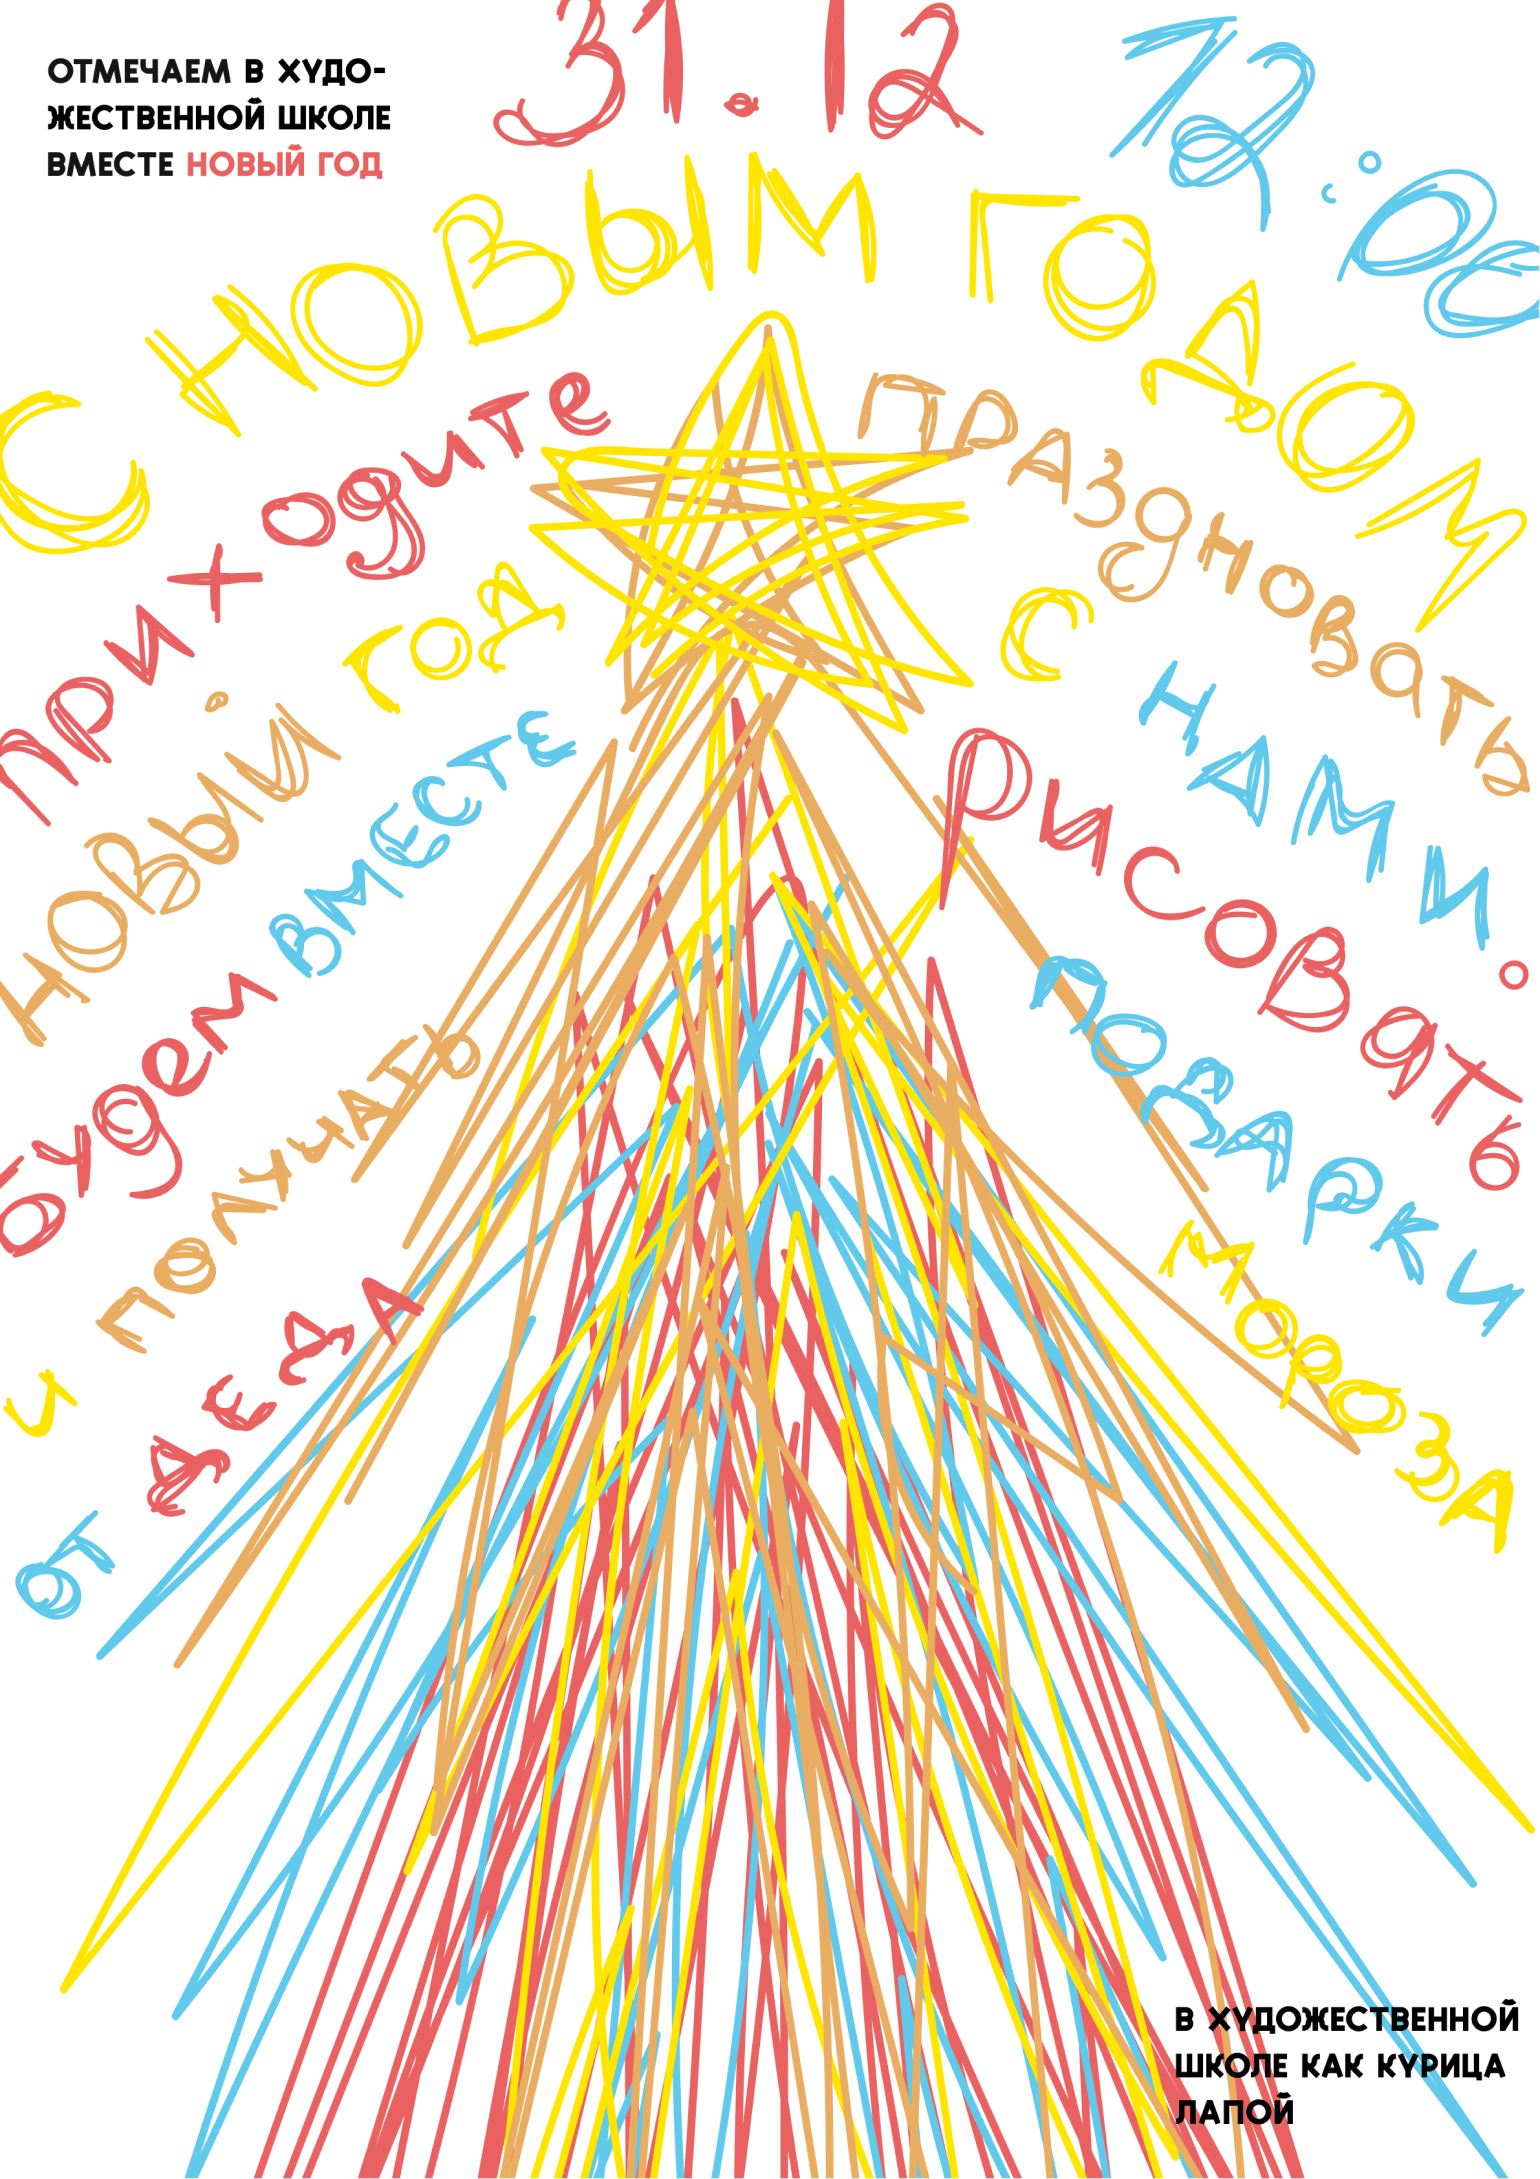 ОТМЕЧАЕМ В ХУДО-
ЖЕСТВЕННОЙ ШКОЛЕ
ВМЕСТЕ НОВЫЙ ГОД
31.12
12:00
С НОВЫМ ГОДОМ
приходите праздновать
новый год с нами.
будем вместе рисовать
и получать подарки
от деда мороза
В ХУДОЖЕСТВЕННОЙ
ШКОЛЕ КАК КУРИЦА
ЛАПОЙ